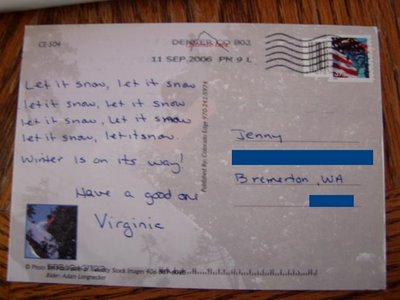 CE-504
DENVER CO 802
11 SEP 2006 PM 9 L
Let it snow, let it snow
let it snow, let it snow
let it snow, let it snow
let it snow, let it snow.
Winter is on its way!
Have a good one
Virginia
Published By: Colorado Edge 970-241-5974
Jenny
Bremerton, WA
© Photo
Stock Images
Rider: Adam